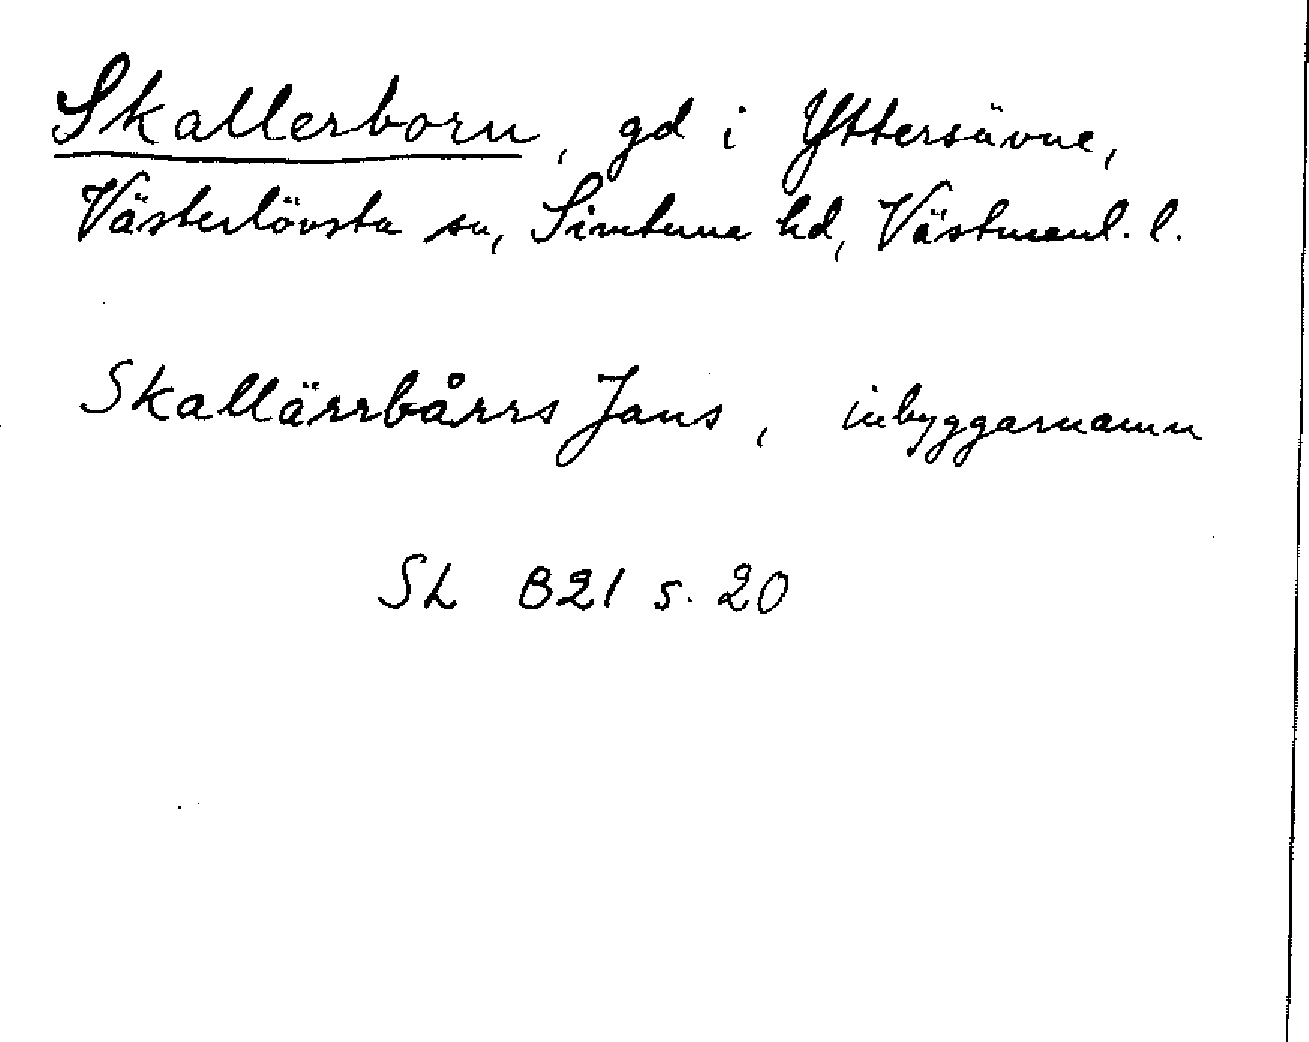 Skallerborn, gd i Yttersävne,
Västerlövsta sn, Simtuna hd, Västmanl. l.
Skallärrbårrs Jans, inbyggarnamn
SL 821 s. 20